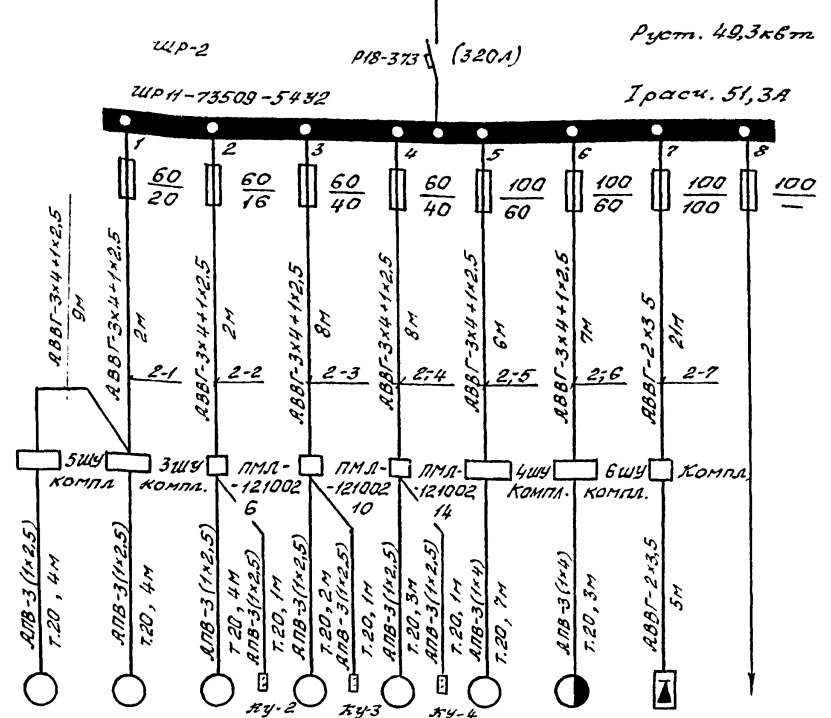 ШР-2
Р18-373 (320А)
Руст. 49,3квт
ШР11-73509-54У2
Iрасч. 51,3А
1 2 3 4 5 6 7 8
60/20 60/16 60/40 60/40 100/60 100/60 100/100 100/—
АВВГ-3×4+1×2,5
9м
АВВГ-3×4+1×2,5
2м
АВВГ-3×4+1×2,5
2м
АВВГ-3×4+1×2,5
8м
АВВГ-3×4+1×2,5
8м
АВВГ-3×4+1×2,5
6м
АВВГ-3×4+1×2,5
7м
АВВГ-2×3 5
21м
2-1 2-2 2-3 2-4 2-5 2-6 2-7
5ШУ компл
3ШУ компл.
ПМЛ-
-121002
6
ПМЛ-
-121002
10
ПМЛ-
-121002
14
4ШУ
компл.
6ШУ
компл.
Компл.
АПВ-3(1×2,5)
т.20, 4м
АПВ-3(1×2,5)
т.20, 4м
АПВ-3(1×2,5)
т.20, 4м
АПВ-3(1×2,5)
т.20, 1м
АПВ-3(1×2,5)
т.20, 2м
АПВ-3(1×2,5)
т.20, 1м
АПВ-3(1×2,5)
т.20, 3м
АПВ-3(1×2,5)
т.20, 1м
АПВ-3(1×4)
т.20, 7м
АПВ-3(1×4)
т.20, 3м
АВВГ-2×3,5
5м
КУ-2 КУ-3 КУ-4